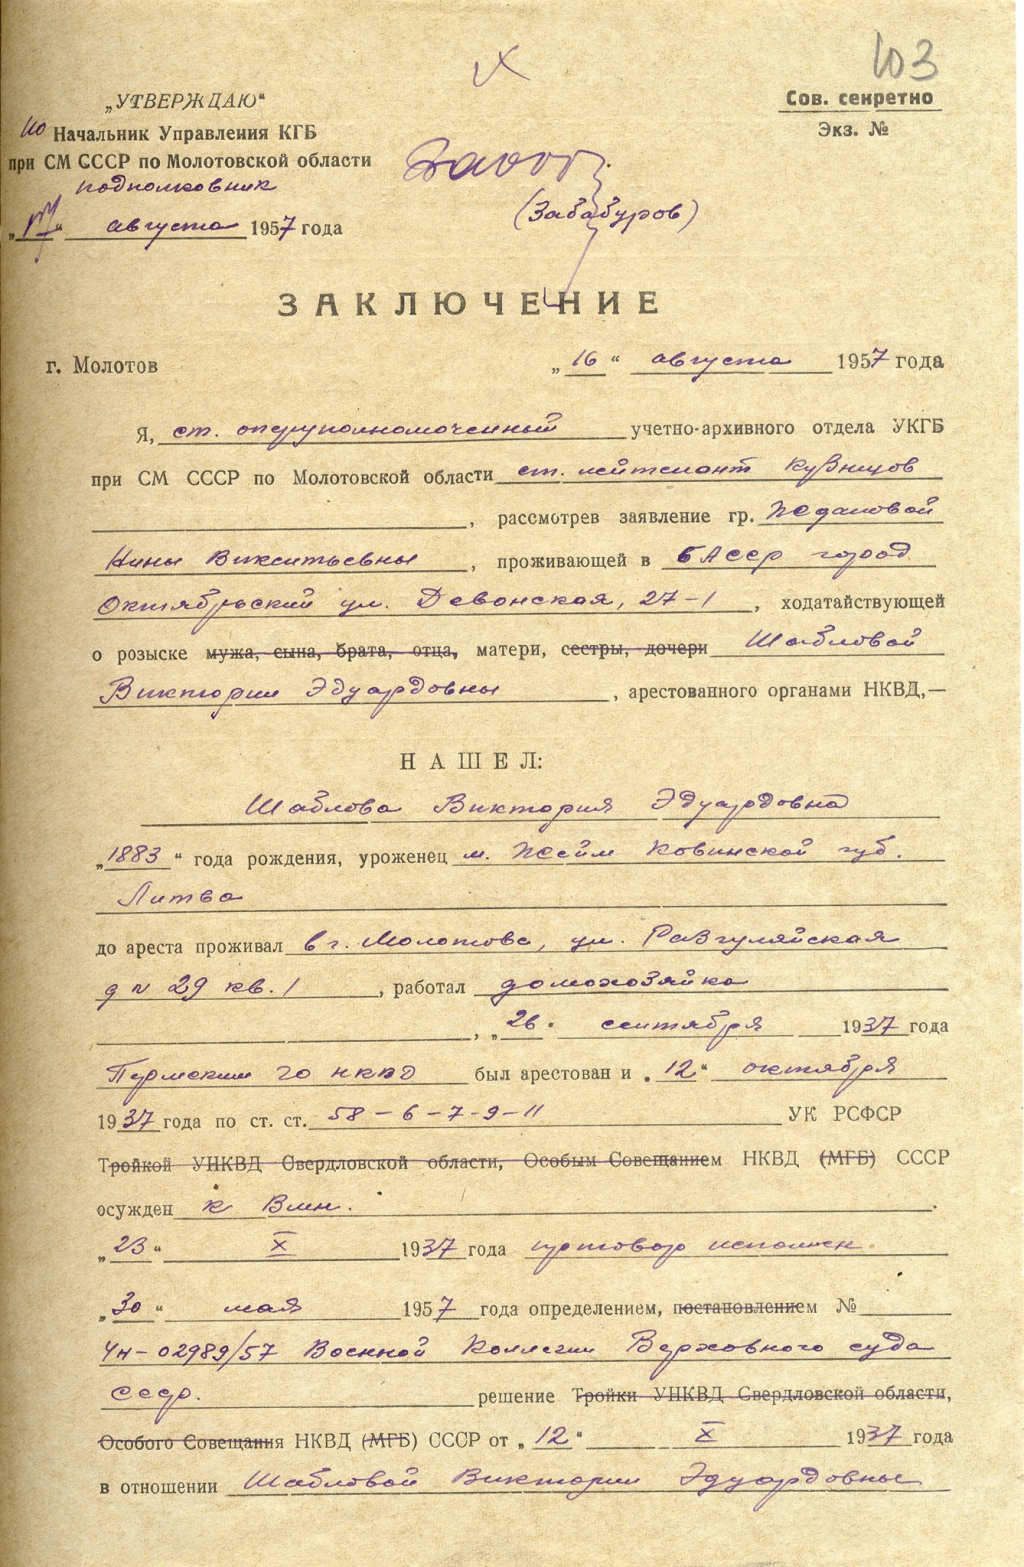 103
Сов. секретно
Экз. №
„УТВЕРЖДАЮ“
Начальник Управления КГБ
при СМ СССР по Молотовской области
подполковник
(Забабуров)
„17“ августа 1957 года
ЗАКЛЮЧЕНИЕ
г. Молотов „16“ августа 1957 года
Я, ст. оперуполномоченный учетно-архивного отдела УКГБ
при СМ СССР по Молотовской области ст. лейтенант Кузнецов
, рассмотрев заявление гр. Ждановой
Нины Викентьевны, проживающей в БАССР город
Октябрьский ул. Девонская, 27-1, ходатайствующей
о розыске мужа, сына, брата, отца, матери, сестры, дочери Шабловой
Виктории Эдуардовны, арестованного органами НКВД,—
НАШЕЛ:
Шаблова Виктория Эдуардовна
„1883“ года рождения, уроженец м. Жеймы Ковинской губ.
Литва
до ареста проживал в г. Молотове, ул. Разгуляйская
д № 29 кв. 1, работал домохозяйка
, „26“ сентября 1937 года
Пермским ГО НКВД был арестован и „12“ октября
1937 года по ст. ст. 58-6-7-9-11 УК РСФСР
Тройкой УНКВД Свердловской области, Особым Совещанием НКВД (МГБ) СССР
осужден к Вмн.
„23“ X 1937 года приговор исполнен.
„30“ мая 1957 года определением, постановлением №
4н-02989/57 Военной Коллегии Верховного суда
ССР. решение Тройки УНКВД Свердловской области,
Особого Совещания НКВД (МГБ) СССР от „12“ X 1937 года
в отношении Шабловой Виктории Эдуардовны